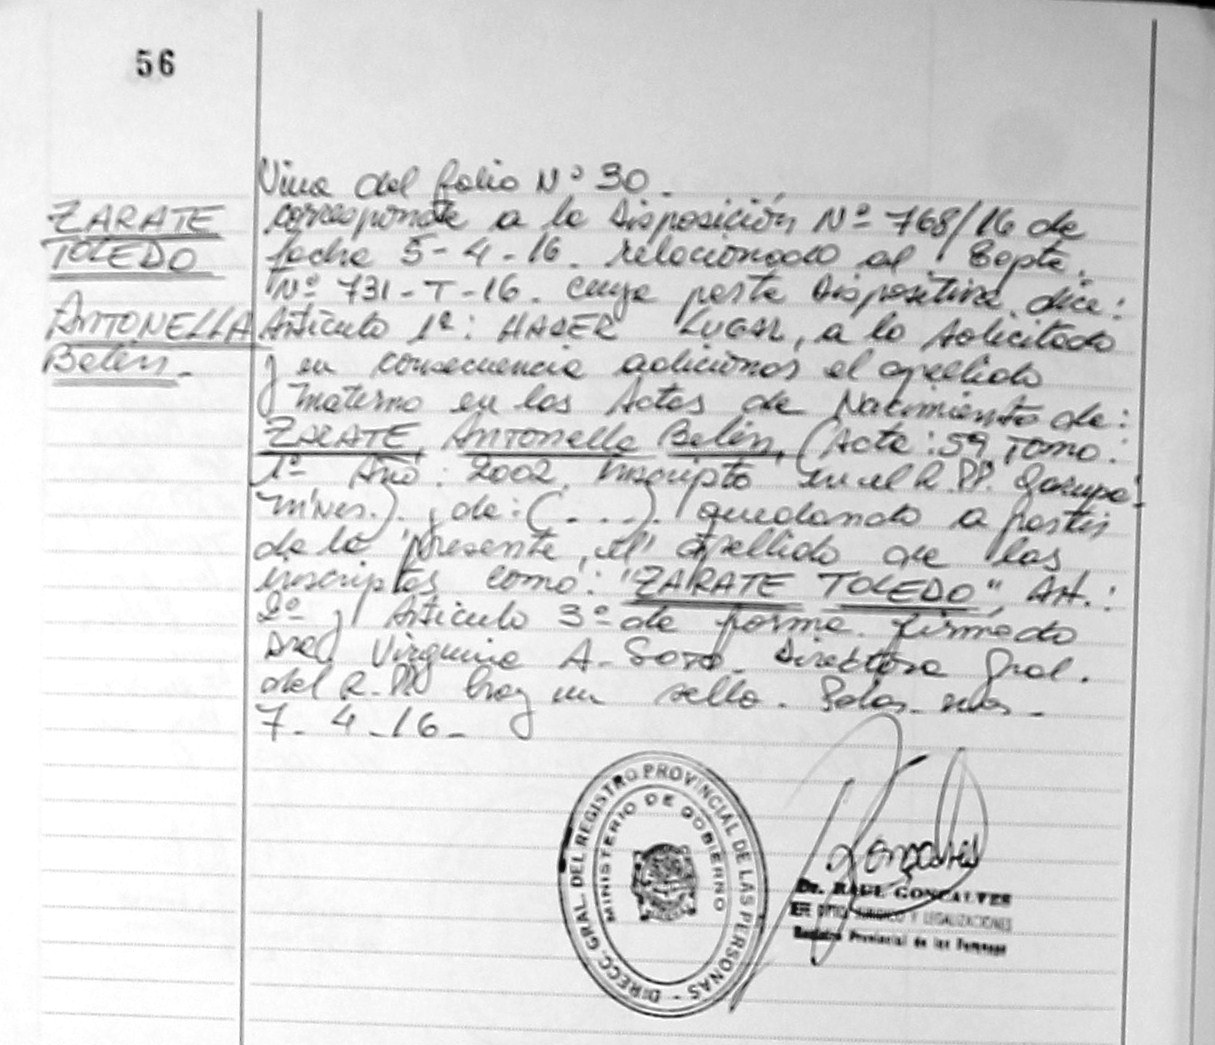 56
Viene del folio Nº 30.
ZARATE
TOLEDO
ANTONELLA
Belén.
corresponde a la Disposición Nº 768/16 de
fecha 5-4-16. relacionado al Expte.
Nº 731-T-16. cuya parte Dispositiva dice:
Articulo 1º: HACER LUGAR, a lo solicitado
y en consecuencia adicionar el apellido
materno en las Actas de Nacimiento de:
ZARATE, Antonella Belén, (Acta: 59 Tomo:
1º Año: 2002, Inscripto en el R.PP. Garupá
Mnes.), de: (....). quedando a partir
de la presente, el apellido de las
inscriptas como: "ZARATE TOLEDO", Art.:
2º y Articulo 3º de forma. firmado
Dra. Virginia A. Soto. Directora Gral.
del R.PP hay un sello. Posadas. Mnes.
7-4-16-
DIRECC. GRAL. DEL REGISTRO PROVINCIAL DE LAS PERSONAS
MINISTERIO DE GOBIERNO
Dr. RAUL GONCALVES
DPTO. JURIDICO Y LEGALIZACIONES
Registro Provincial de las Personas